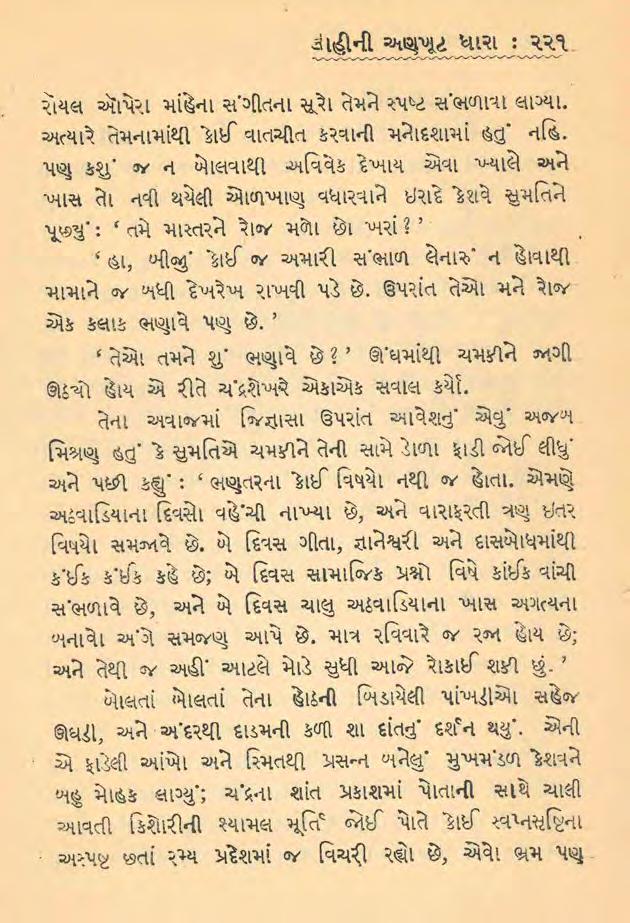 વ્રાહીની અણખૂટ ધારા : ૨૨૧
રૉયલ ઑપેરા માંહેના સંગીતના સૂરો તેમને સ્પષ્ટ સંભળાવા લાગ્યા.
અત્યારે તેમનામાંથી કોઈ વાતચીત કરવાની મનોદશામાં હતું નહિ.
પણ કશું જ ન બોલવાથી અવિવેક દેખાય એવા ખ્યાલે અને
ખાસ તો નવી થયેલી ઓળખાણ વધારવાને ઇરાદે કેશવે સુમતિને
પૂછ્યું : ‘ તમે માસ્તરને રોજ મળો છો ખરાં ? ’
‘ હા, બીજું કોઈ જ અમારી સંભાળ લેનારું ન હોવાથી
મામાને જ બધી દેખરેખ રાખવી પડે છે. ઉપરાંત તેઓ મને રોજ
એક કલાક ભણાવે પણ છે. ’
‘ તેઓ તમને શું ભણાવે છે ? ’ ઊંઘમાંથી ચમકીને જાગી
ઊઠ્યો હોય એ રીતે ચંદ્રશેખરે એકાએક સવાલ કર્યો.
તેના અવાજમાં જિજ્ઞાસા ઉપરાંત આવેશનું એવું અજબ
મિશ્રણ હતું કે સુમતિએ ચમકીને તેની સામે ડોળા ફાડી જોઈ લીધું
અને પછી કહ્યું : ‘ ભણતરના કોઈ વિષયો નથી જ હોતા. એમણે
અઠવાડિયાના દિવસો વહેંચી નાખ્યા છે, અને વારાફરતી ત્રણ ઇતર
વિષયો સમજાવે છે. બે દિવસ ગીતા, જ્ઞાનેશ્વરી અને દાસબોધમાંથી
કંઈક કંઈક કહે છે; બે દિવસ સામાજિક પ્રશ્નો વિષે કાંઈક વાંચી
સંભળાવે છે, અને બે દિવસ ચાલુ અઠવાડિયાના ખાસ અગત્યના
બનાવો અંગે સમજણ આપે છે. માત્ર રવિવારે જ રજા હોય છે;
અને તેથી જ અહીં આટલે મોડે સુધી આજે રોકાઈ શકી છું. ’
બોલતાં બોલતાં તેના હોઠની બિડાયેલી પાંખડીઓ સહેજ
ઊઘડી, અને અંદરથી દાડમની કળી શા દાંતનું દર્શન થયું. એની
એ ફાડેલી આંખો અને સ્મિતથી પ્રસન્ન બનેલું મુખમંડળ કેશવને
બહુ મોહક લાગ્યું; ચંદ્રના શાંત પ્રકાશમાં પોતાની સાથે ચાલી
આવતી કિશોરીની શ્યામલ મૂર્તિ જોઈ પોતે કોઈ સ્વપ્નસૃષ્ટિના
અસ્પષ્ટ છતાં રમ્ય પ્રદેશમાં જ વિચરી રહ્યો છે, એવો ભ્રમ પણ